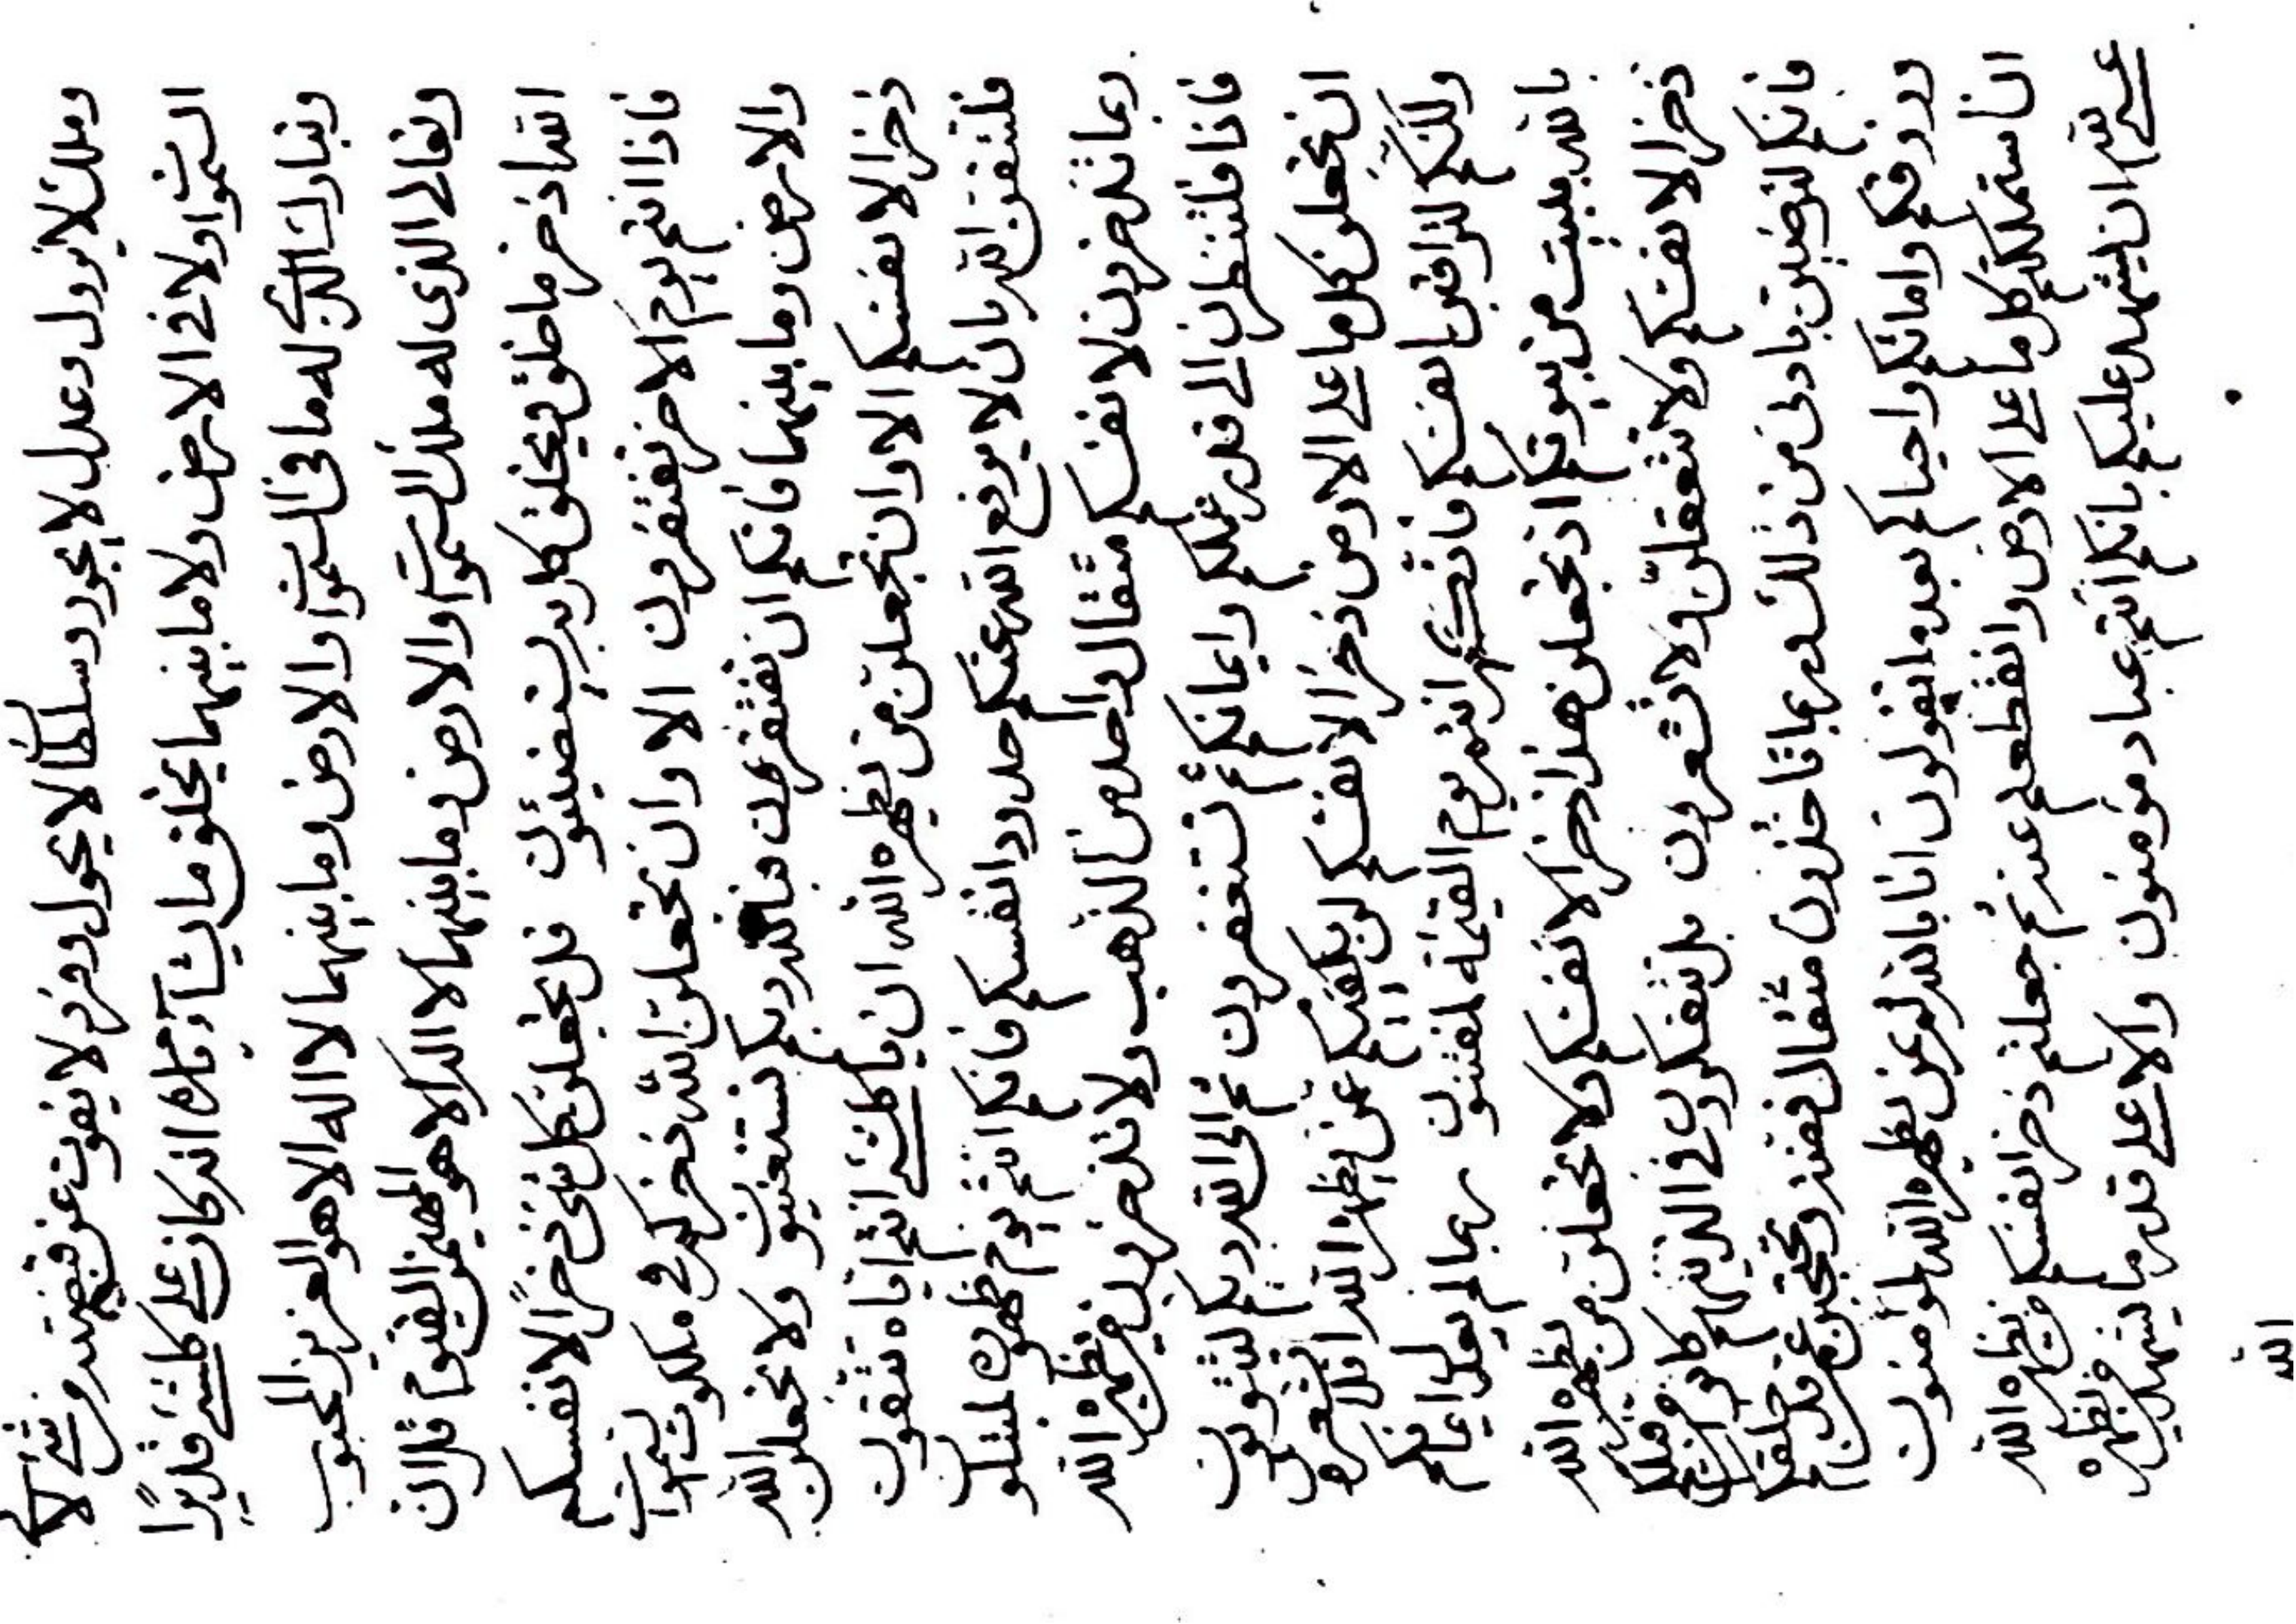 وملك لا يزول وعدل لا يجور وسلطانا لا يحول وفرد لا يفوت عن قبضته من شئ لا في
السموات ولا في الارض ولا ما بينهما يخلق ما يشآء بامره انه كان على كلشئ قديرًا
وتبارك الذي له ما في السموات والارض وما بينهما لا اله الا هو العزيز المحبوب
وتعالى الذى له ملك السموات والارض وما بينهما لا اله الا هو المهيمن القيوم قل ان
الله اذخر ما خلق ويخلق كل به يستضيئون قل تجعلن كل شئ ذخرًا لانفسكم
فاذا انتم يوم الاخر تفتقرون الا وان تجعلن الله ذخركم في ملكوت السموات
والارض وما بينهما فانكم ان تفتقرن فبالله ربكم تستغنيون ولا تجعلن الله
ذخرا لانفسكم الا وان تجعلن من يظهره الله ان ياكلشئ انتم اياه تتقون
فلتتقن الله بان لا يرفع الله عنكم حدود انفسكم فانكم انتم يوم ظهوره لمبتلون
بما تذخرون لانفسكم مثقال واحد من الذهب ولا تذخرون من يظهره الله
فاذا فلتنظرن الى قدر وايمانكم ثم تستغفرون ثم الى الله ربكم لتتوبون
ان تجعلن كل ما على الارض ذخرا لانفسكم لن يكفيكم عن يظهره الله افلا تشعرون
ولكنكم لتراقبن انفسكم فانكم انتم يوم القيمة لمفتنون بما لم ايمانكم
بالله ببيت من بيوتكم اذ تجعلن هذا ذخرا لانفسكم ولا تجعلن من يظهره الله
ذخرا لانفسكم ولا تتعقلن ولا تشعرون بل تتفكرون في الذينهم كانوا من قبلكم
فانكم لترضين بادنى من ذلك بما تاخذون مثقال فضة وتحتجبن عمن قد خلقكم
ورزقكم واماتكم واحياكم بعد ما تقولون انا بالله ثم بمن يظهره الله لمؤمنون
ان استملكتم كل ما على الارض وانقطعتم عنه ثم جعلتم ذخر انفسكم من يظهره الله
على الله ان يشهد عليكم بانكم انتم عباد مؤمنون والا على قدر ما يشهد من يظهره
الله